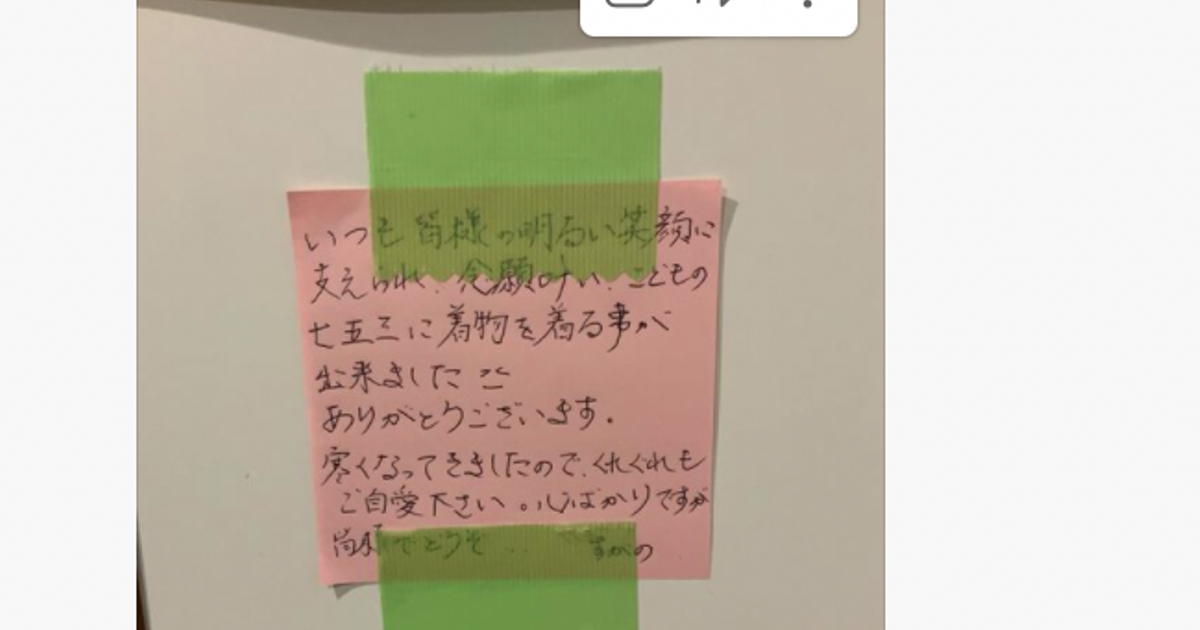 いつも皆様の明るい笑顔に
支えられ、念願叶い、こどもの
七五三に着物を着る事が
出来ました
ありがとうございます.
寒くなってきましたので、くれぐれも
ご自愛下さい。心ばかりですが
皆様でどうぞ..